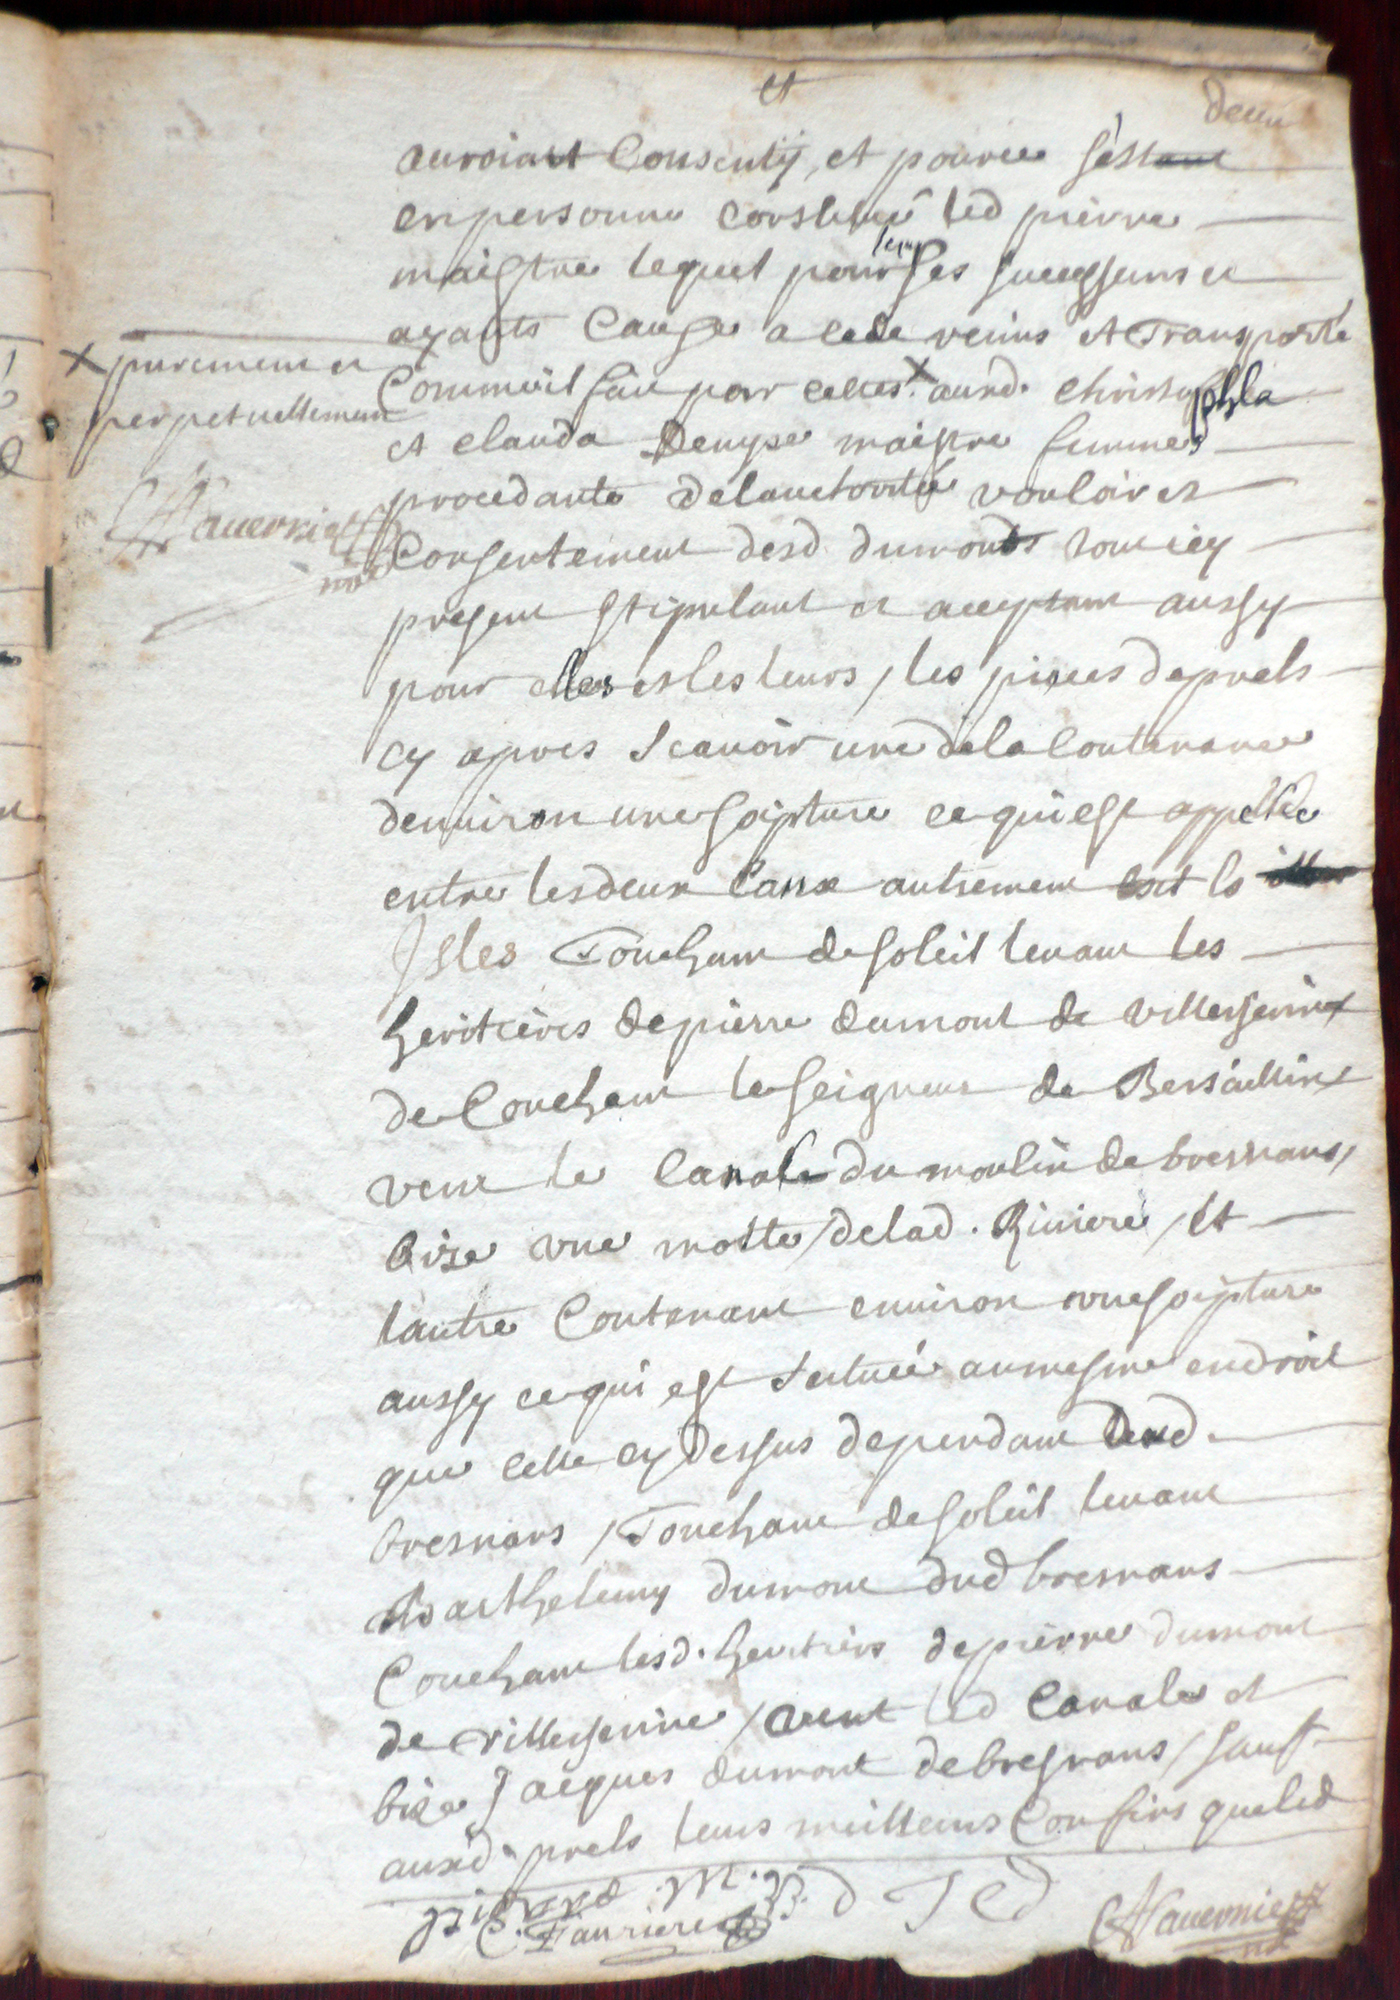 et
auroiat Consenty, et pource s'estant
en personne constitué led pierre
maistre lequel pour ses successeurs et
ayants Cause a cede remis et Transporté
x purement et
perpetuellement
Comme il fait par cettes x auxd. christophla
et clauda Denyse maistre femmes
procedante de lauthorité vouloir et
Consentement desd dumonts
present stipulant et acceptant aussy
pour elles et les leurs, les pieces de prels
cy apres scavoir une de la Contenance
denuiron une soipture ce qui est appellée
entre les deux Eaux autrement les
Isles Touchant de soleil leuant les
heritiers de pierre dumont de villersenine
de Couchant le seigneur de
vent le Canale du moulin de bresnans,
bize vne motte de lad. Riuiere, et
lautre Contenant enuiron vne soipture
aussy ce qui est scituée au mesme endroit
que celle cy dessus dependant dud.
bresnans, Touchant de soleil leuant
Barthelemy dumont dud bresnans
Couchant lesd. heritiers de pierre dumont
de villersenine, vent led Canale et
bize Jacques dumont de bresnans, sauf
auxd. prels leurs meilleurs Confins que led
pierre M.
C. Fauriere